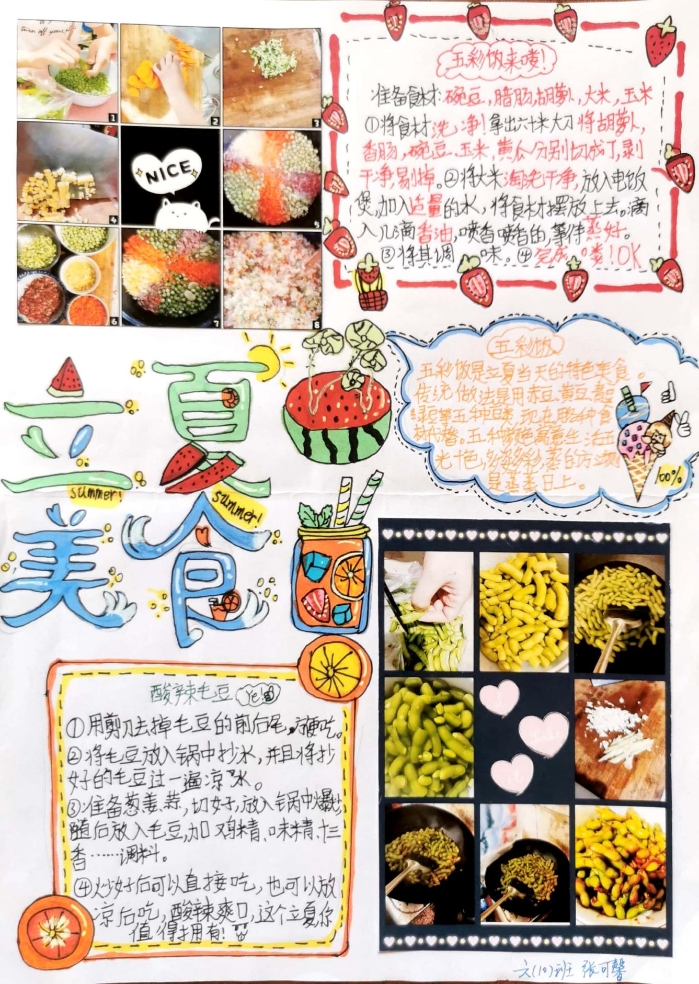 1
2
3
4
NICE
5
6
7
8
五彩饭来喽!
准备食材:豌豆,腊肠,胡萝卜,大米,玉米
①将食材洗净!拿出六十米大刀将胡萝卜,
香肠,豌豆.玉米,黄瓜分别切成丁,剥
干净,剔掉。②将大米淘洗干净,放入电饭
煲,加入适量的水,将食材摆放上去。滴
入几滴香油,喷香喷香的,等待蒸好.
③将其调味。④完成喽!OK
五彩饭
五彩饭是立夏当天的特色美食。
传统做法是用赤豆.黄豆.
绿豆等五种豆
代替。五种颜色
100%
立夏
美食
summer!
summer!
酸辣毛豆 Ye!
①用剪刀去掉毛豆的前后尾,方便吃。
②将毛豆放入锅中抄水,并且将抄
好的毛豆过一遍凉水。
③准备葱姜.蒜,切好,放入锅中爆炒
随后放入毛豆,加鸡精、味精、十三
香……调料。
④炒好后可以直接吃,也可以放
凉后吃,酸辣爽口,这个立夏你
值得拥有!
六(10)班 张可馨